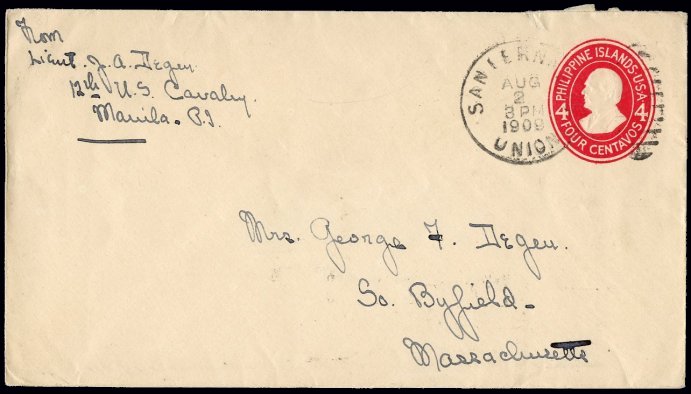 From
Lieut. J. A. Degen
12th U.S. Cavalry.
Manila. P.I.
SAN FERN
AUG
2
3 PM
1909
UNION
PHILIPPINE ISLANDS·U.S.A.
4 4
FOUR CENTAVOS
Mrs. George F. Degen.
So. Byfield-
Massachusetts